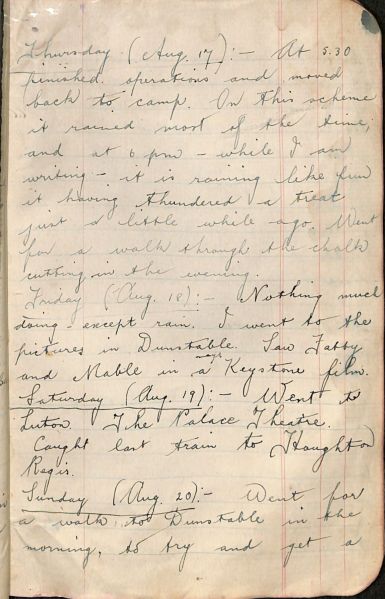 Thursday (Aug. 17):- At 5.30
finished operations and moved
back to camp. On this scheme
it rained most of the time,
and at 6 pm - while I am
writing - it is raining like fun
it having thundered a treat
just a little while ago. Went
for a walk through the chalk
cutting in the evening.
Friday (Aug. 18):- Nothing much
doing - except rain. I went to the
pictures in Dunstable. Saw Fatty
and Mable in a Keystone film.
Saturday (Aug. 19):- Went to
Luton. The Palace Theatre.
Caught last train to Houghton
Regis.
Sunday (Aug. 20):- Went for
a walk to Dunstable in the
morning, to try and get a